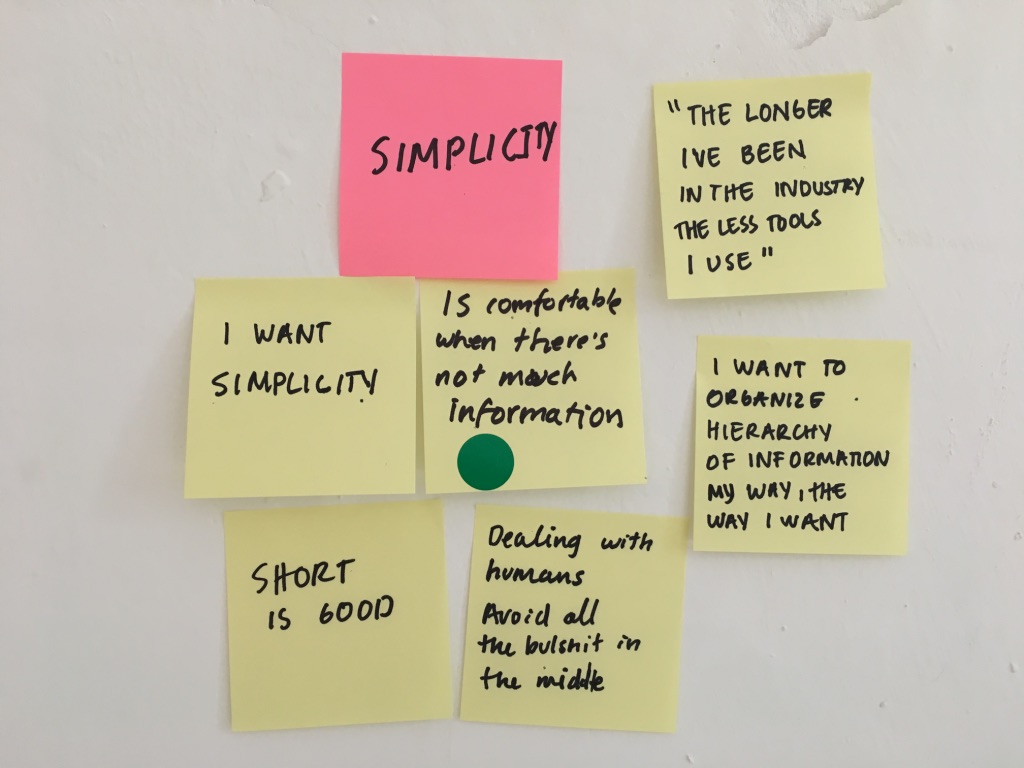 SIMPLICITY
"THE LONGER
I'VE BEEN
IN THE INDUSTRY
THE LESS TOOLS
I USE"
I WANT
SIMPLICITY
Is comfortable
when there's
not much
information
I WANT TO
ORGANIZE
HIERARCHY
OF INFORMATION
MY WAY, THE
WAY I WANT
SHORT
IS GOOD
Dealing with
humans
Avoid all
the bulshit in
the middle